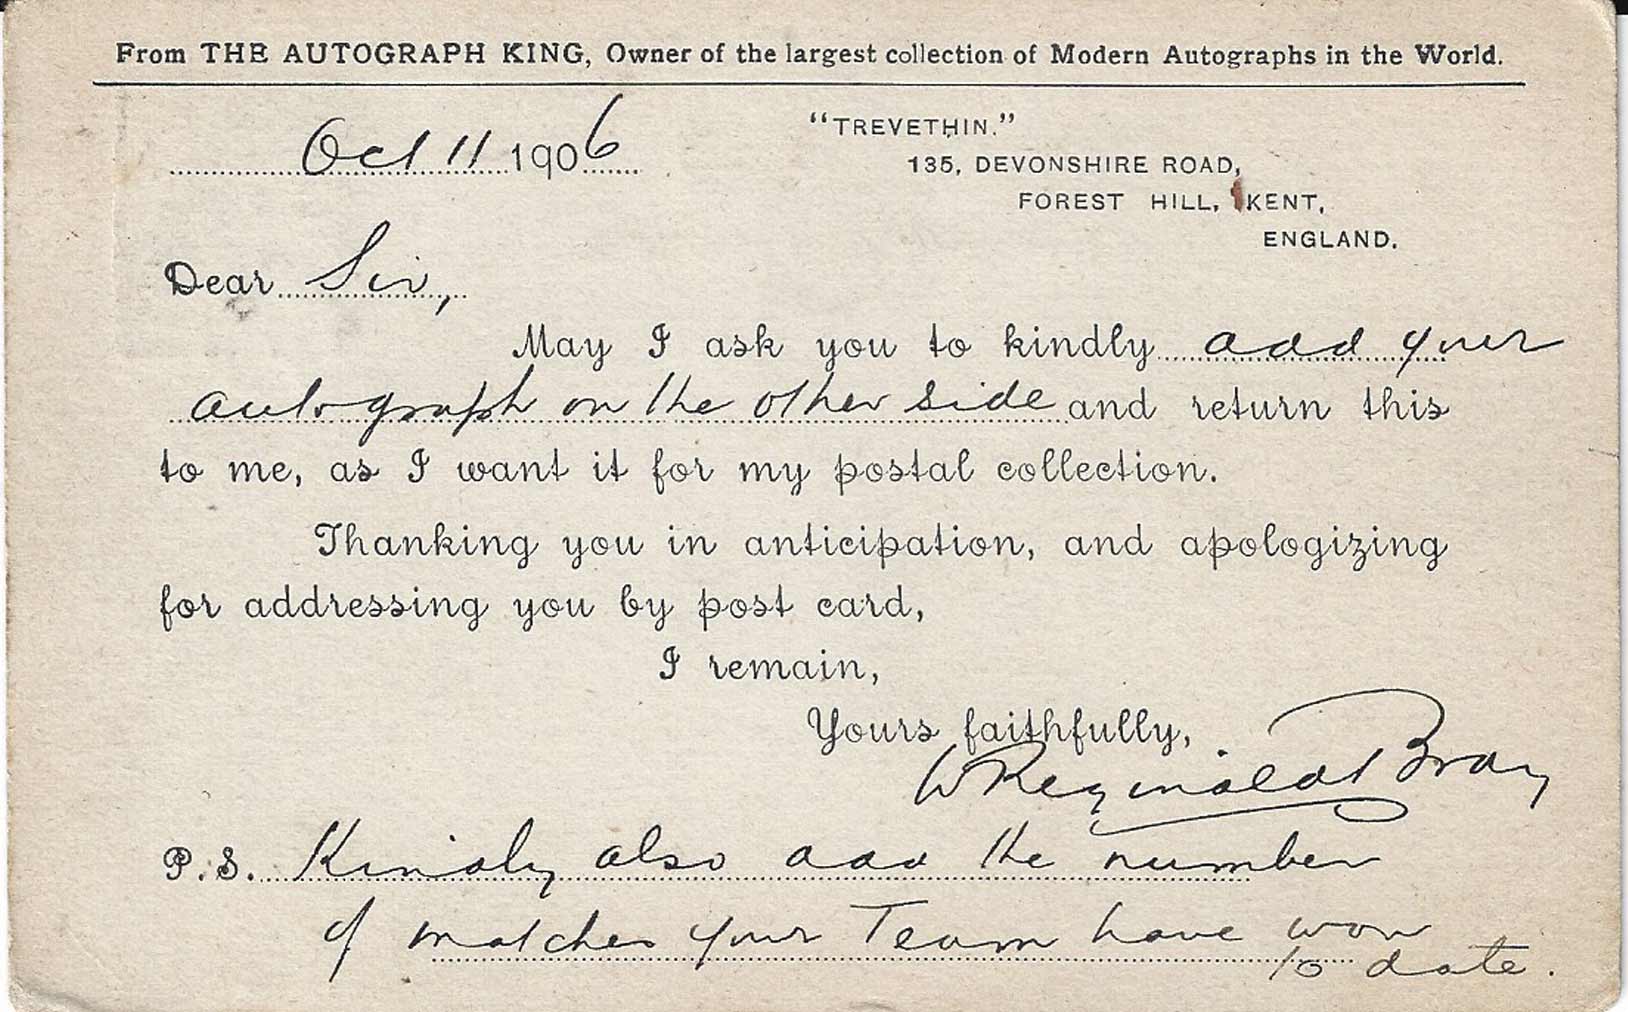 From THE AUTOGRAPH KING, Owner of the largest collection of Modern Autographs in the World.
Oct 11 1906
"TREVETHIN."
135, DEVONSHIRE ROAD,
FOREST HILL, KENT,
ENGLAND.
Dear Sir,
May I ask you to kindly add your
autograph on the other side and return this
to me, as I want it for my postal collection.
Thanking you in anticipation, and apologizing
for addressing you by post card,
I remain,
Yours faithfully,
W Reginald Bray
P.S. Kindly also add the number
of matches your Team have won
to date.